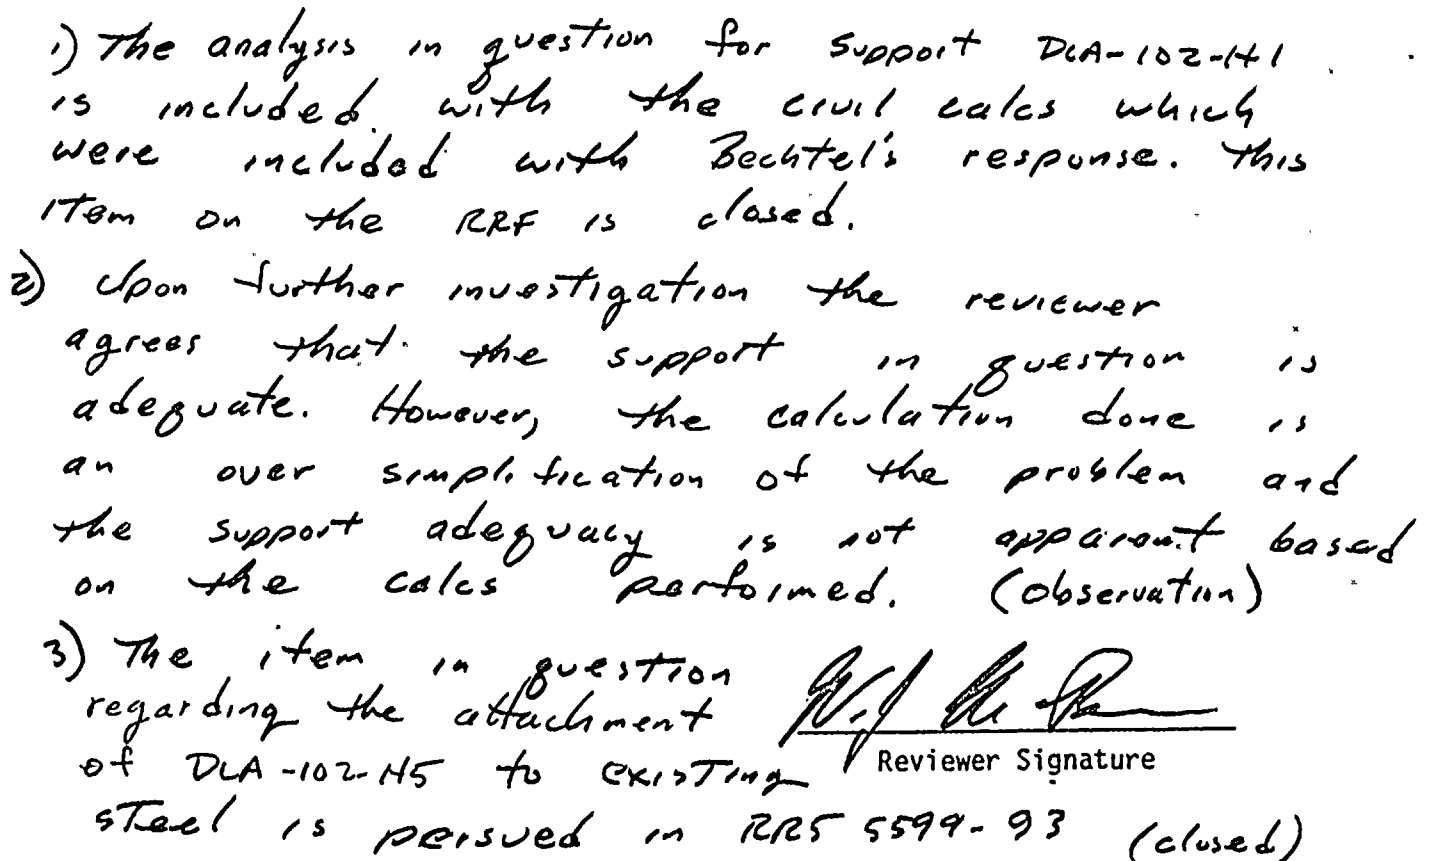 1) The analysis in question for support DLA-102-H1
is included with the civil calcs which
were included with Bechtel's response. This
item on the RRF is closed.
2) Upon further investigation the reviewer
agrees that the support in question is
adequate. However, the calculation done is
an over simplification of the problem and
the support adequacy is not apparent based
on the calcs performed. (observation)
3) The item in question
regarding the attachment
of DLA-102-H5 to existing
Reviewer Signature
steel is persued in RRF 5599-93 (closed)